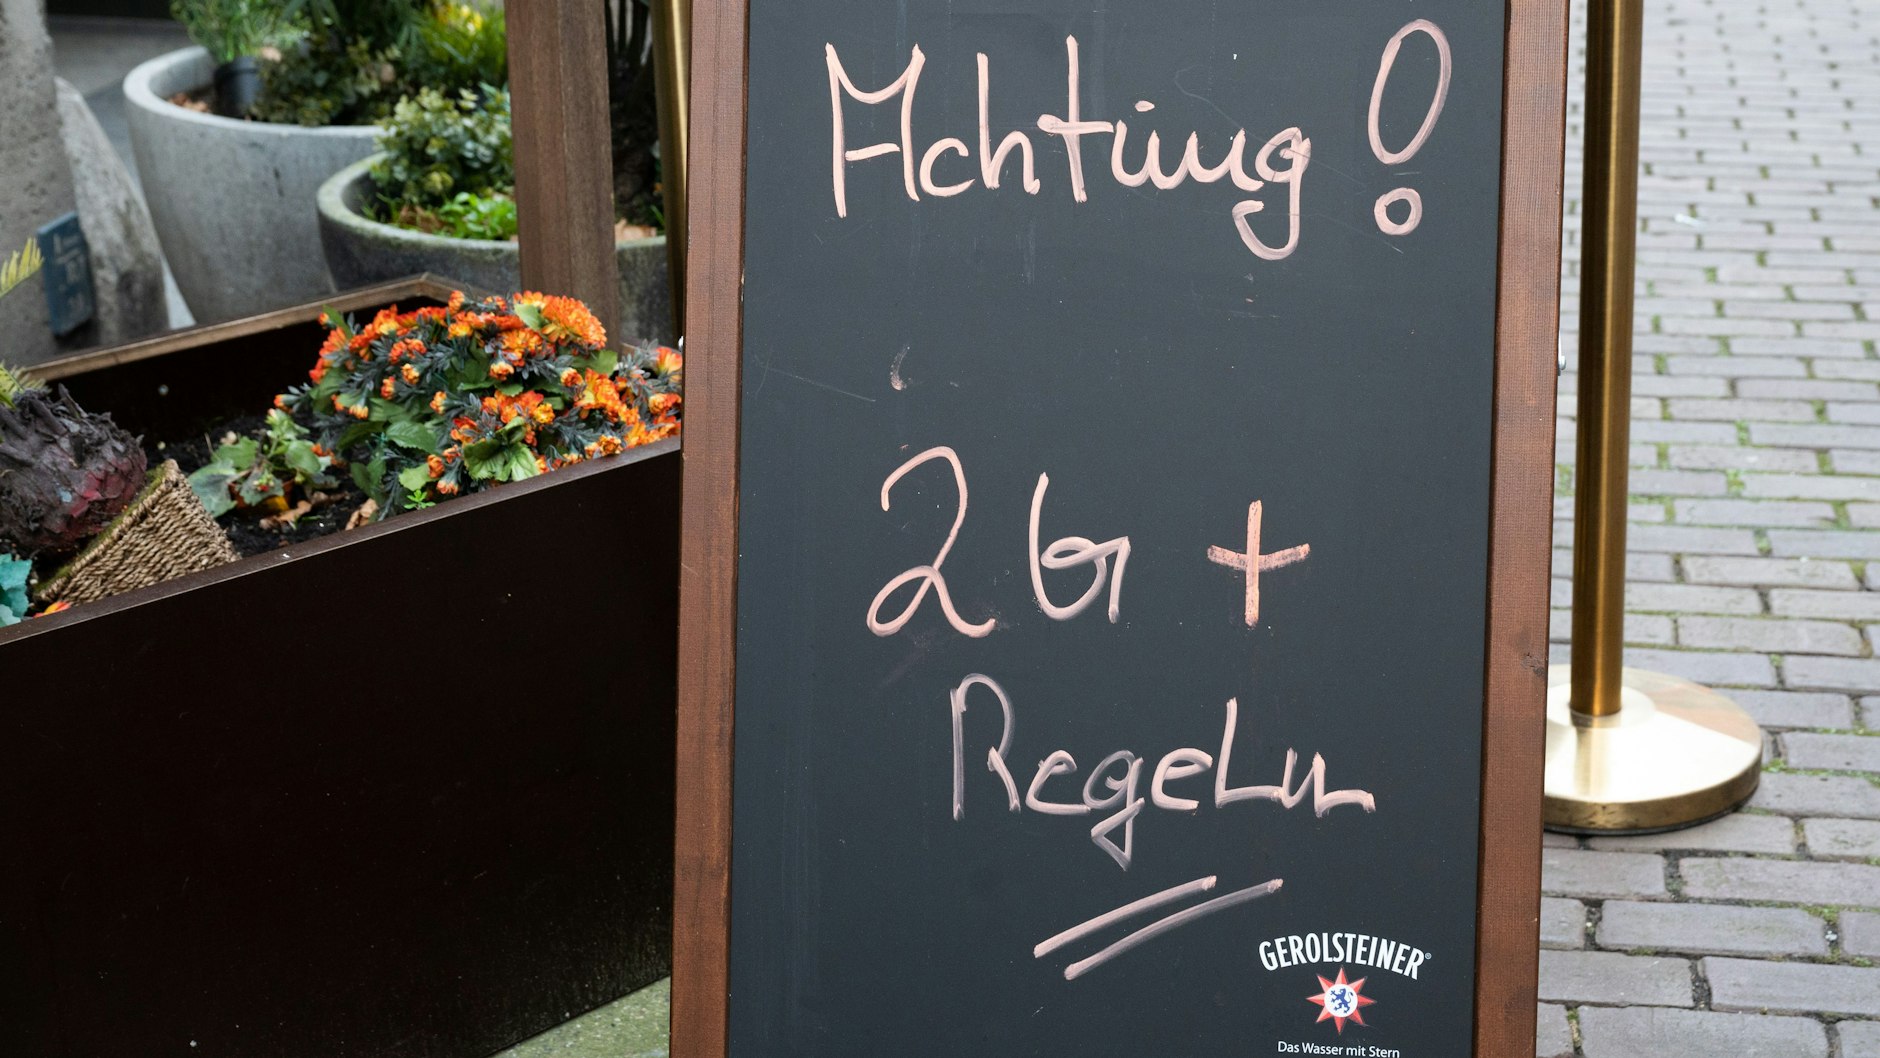 Achtung!
2G +
Regeln
GEROLSTEINER®
Das Wasser mit Stern